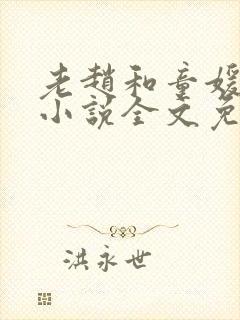 老趙和童媛
小說全文免
洪永世